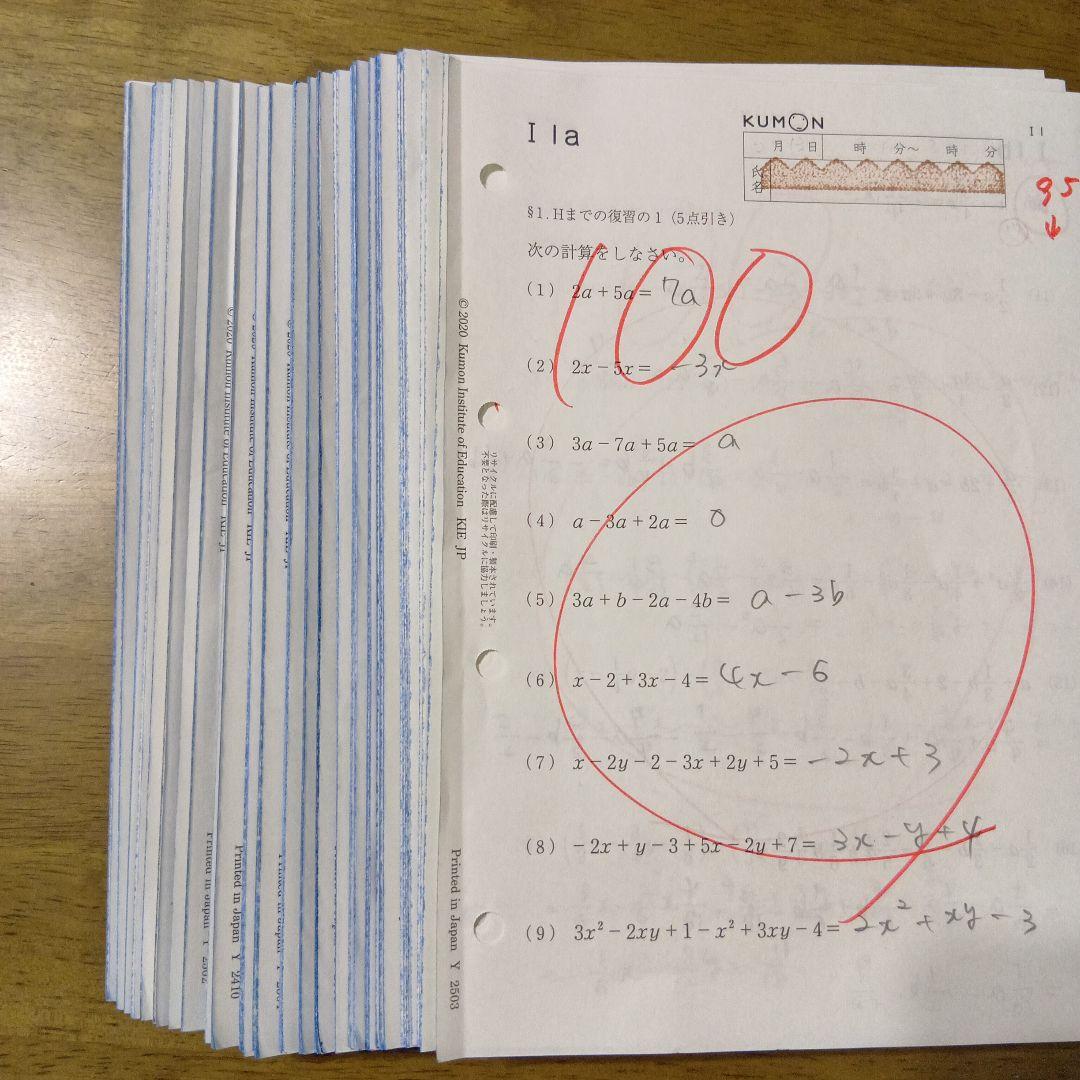 I 1a
KUMON
I 1
月 日 時 分~ 時 分
氏名
95
↓
§1.Hまでの復習の1 (5点引き)
次の計算をしなさい。
100
(1) 2a+5a= 7a
(2) 2x-5x= -3x
(3) 3a-7a+5a= a
(4) a-3a+2a= 0
(5) 3a+b-2a-4b= a-3b
(6) x-2+3x-4= 4x-6
(7) x-2y-2-3x+2y+5= -2x+3
(8) -2x+y-3+5x-2y+7= 3x-y+4
(9) 3x²-2xy+1-x²+3xy-4= 2x²+xy-3
© 2020 Kumon Institute of Education KIE JP
リサイクルに配慮して印刷・製本されています。
不要となった際はリサイクルに協力しましょう。
Printed in Japan Y 2503
© 2020 Kumon Institute of Education KIE JP
Printed in Japan Y 2410